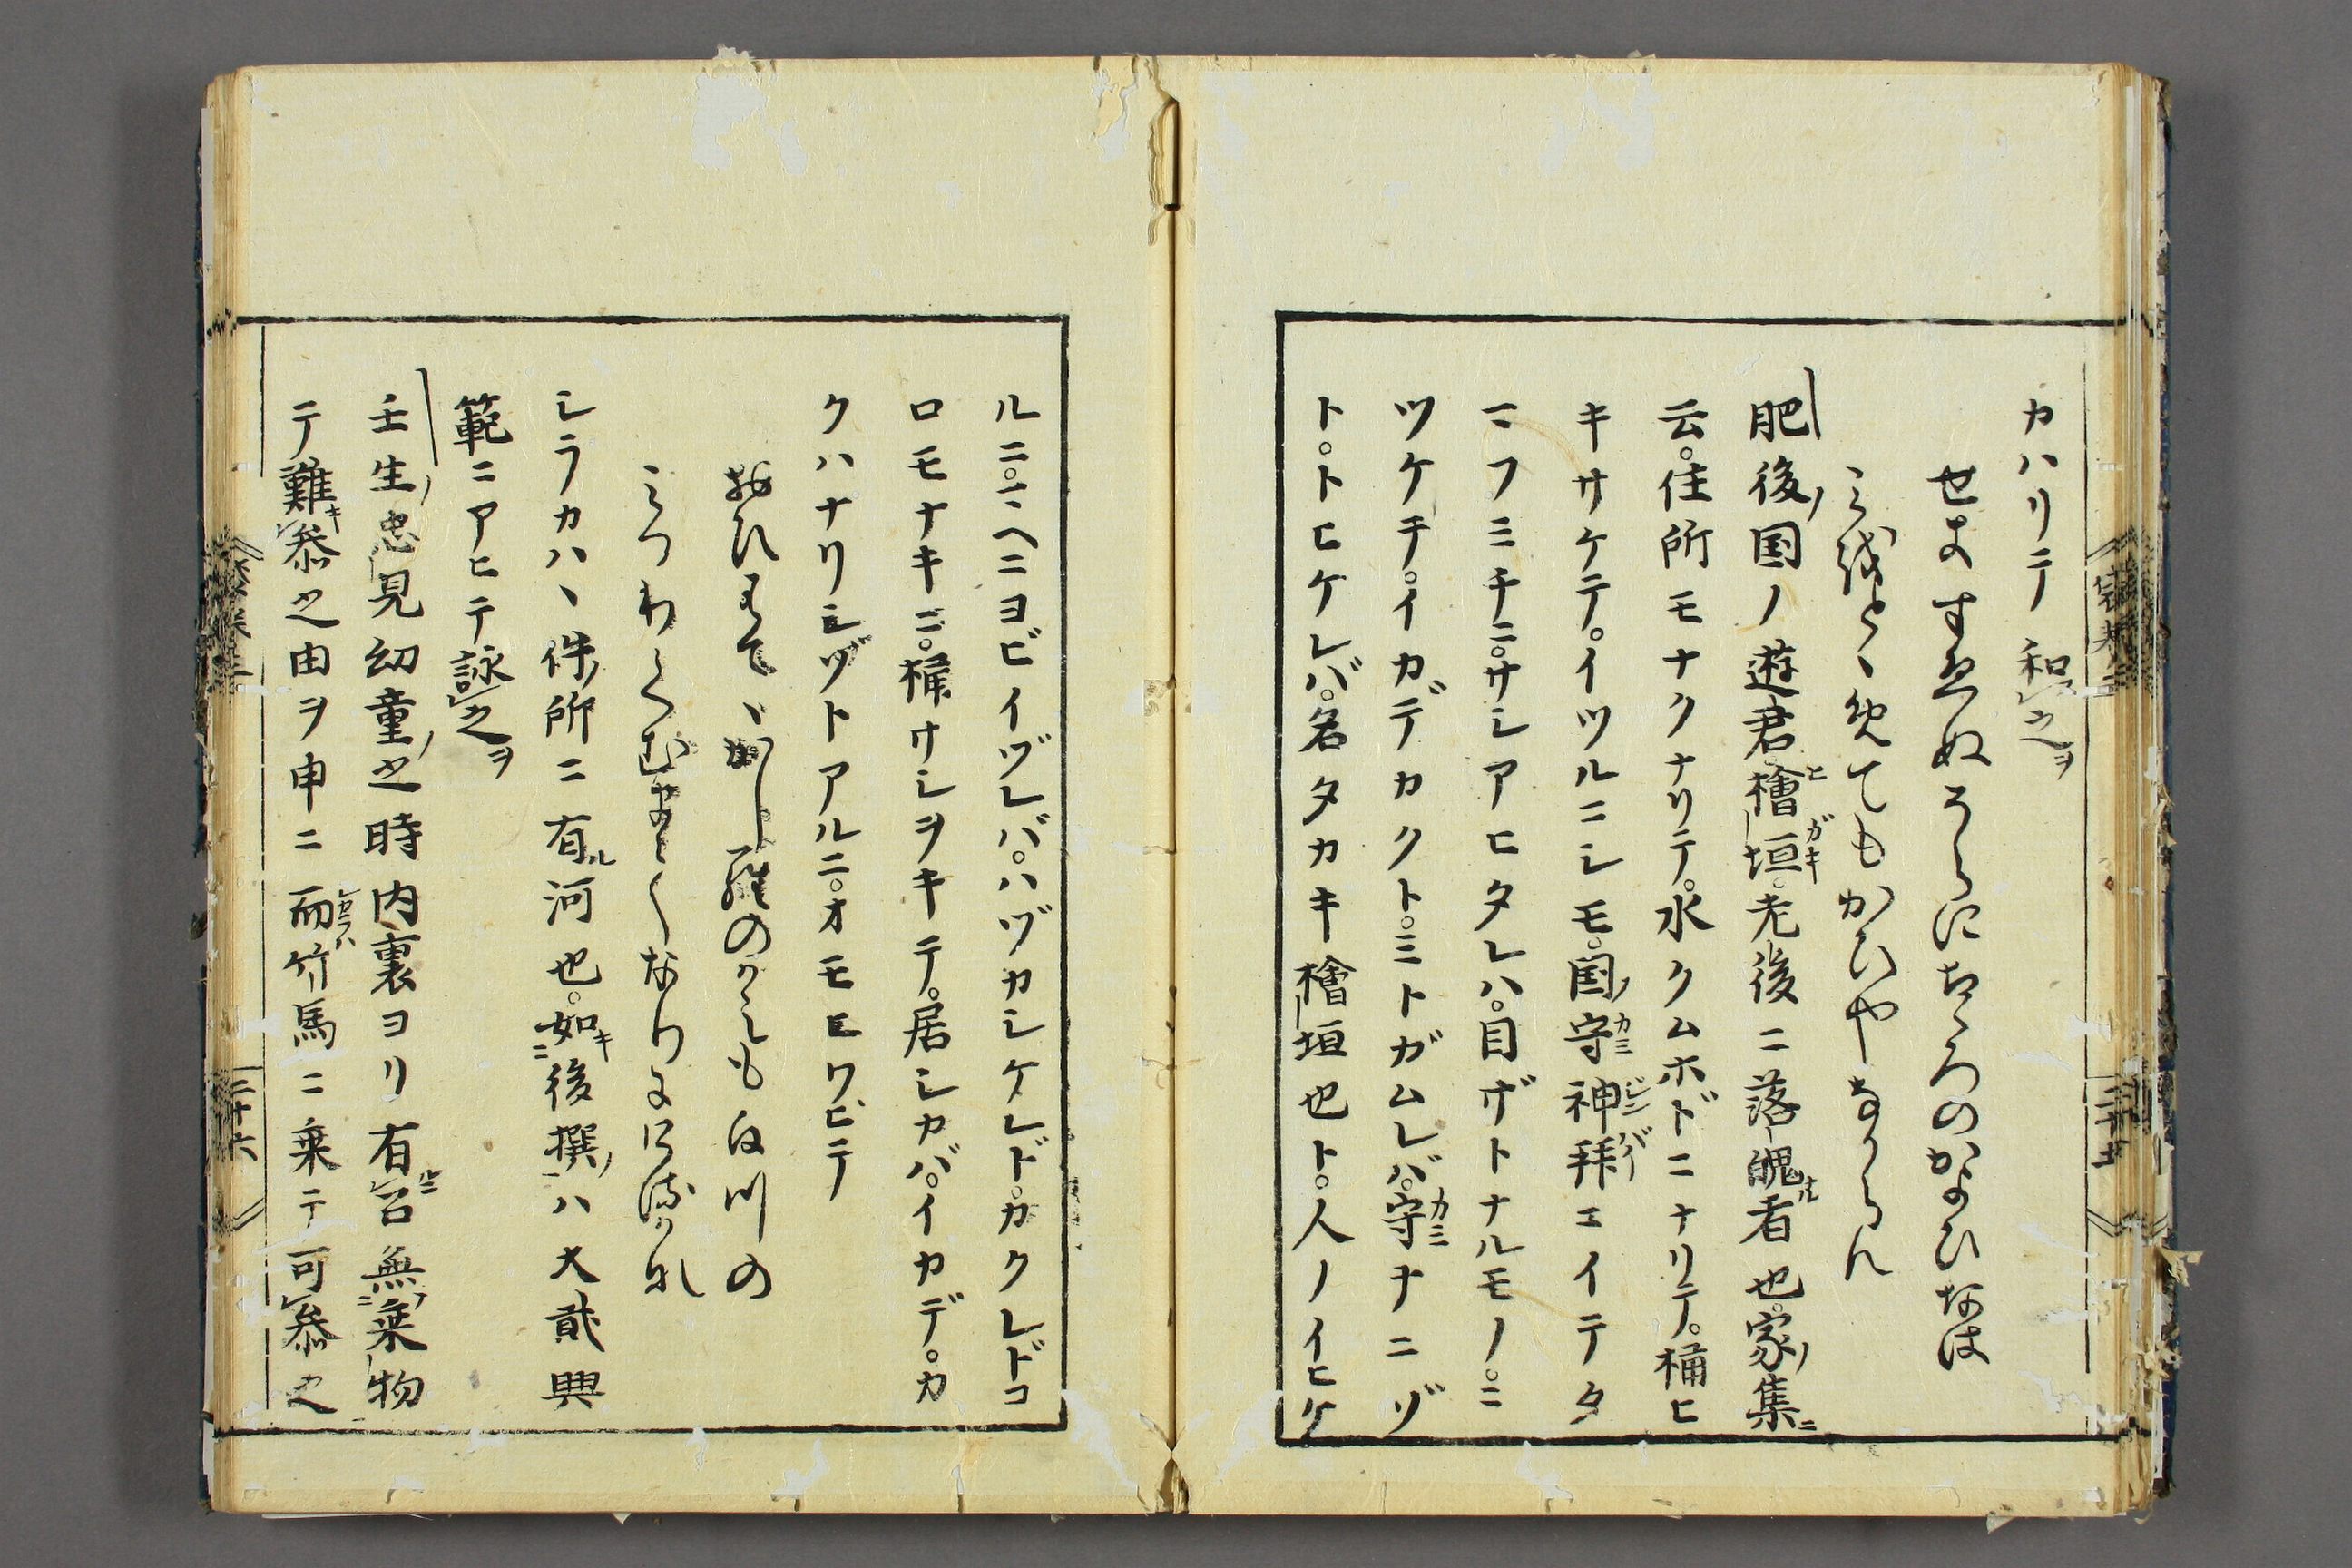 カハリテ和之ヲ
せきもすゑぬそらにこゝろのかよひなは
肥後ノ国ノ遊君檜垣。老後ニ落魄者也。家ノ集ニ
云。住所モナクナリテ。水クムホドニナリテ。桶ヒ
キサケテ。イツルニシモ。国ノ守神拝ニイテタ
マフミチニ。サシアヒタレハ。目ザトナルモノ。ニ
ツケテ。イカデカクト。ミトガムレバ。守ナニゾ
ト。トヒケレバ。名タカキ檜垣也ト。人ノイヒケ
ルニ。マヘニヨビイヅレバ。ハヅカシケレド。カクレドコ
ロモナキニ。桶サシヲキテ。居シカバ。イカデ。カ
クハナリシゾトアルニ。オモヒワビテ
おひはてゝかしらのかみも白川の
みつわくむまてなりにけるかな
シラカハヽ件ノ所ニ有ル河也。如キ後撰ノハ大貳興
範ニアヒテ詠之ヲ
壬生ノ忠見幼童ノ之時内裏ヨリ有召無乗物
テ難キ参之由ヲ申ニ而竹馬ニ乗テ可参之
二十六